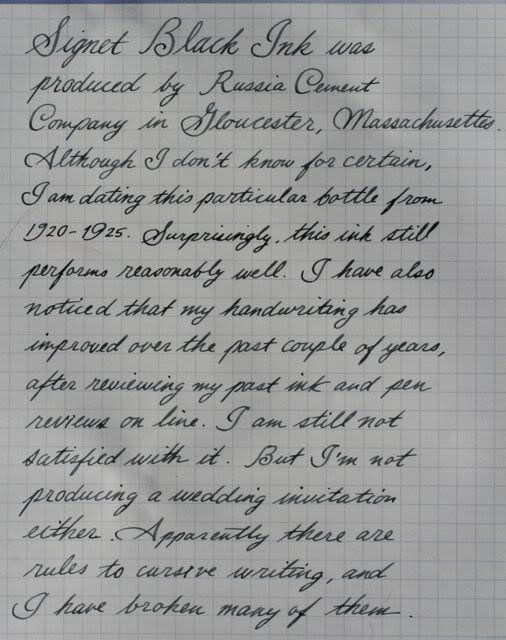 Signet Black Ink was
produced by Russia Cement
Company in Gloucester, Massachusetts.
Although I don't know for certain,
I am dating this particular bottle from
1920-1925. Surprisingly, this ink still
performs reasonably well. I have also
noticed that my handwriting has
improved over the past couple of years,
after reviewing my past ink and pen
reviews on line. I am still not
satisfied with it. But I'm not
producing a wedding invitation
either. Apparently there are
rules to cursive writing, and
I have broken many of them.